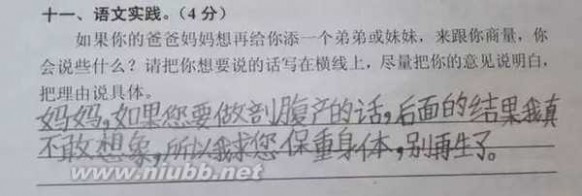 十一、语文实践。(4分)
如果你的爸爸妈妈想再给你添一个弟弟或妹妹，来跟你商量，你
会说些什么？请把你想要说的话写在横线上，尽量把你的意见说明白，
把理由说具体。
妈妈，如果您要做剖腹产的话，后面的结果我真
不敢想象，所以我求您保重身体，别再生了。
www.niubb.net